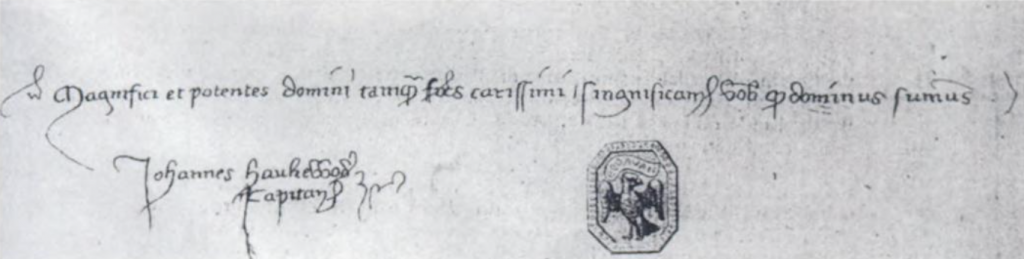 Magnifici et potentes domini tamqꝫ fr̃es carissimi / singnificamꝰ vob̃ ꝙ dominus sumus
Johannes haukevvod
Capitanꝰ